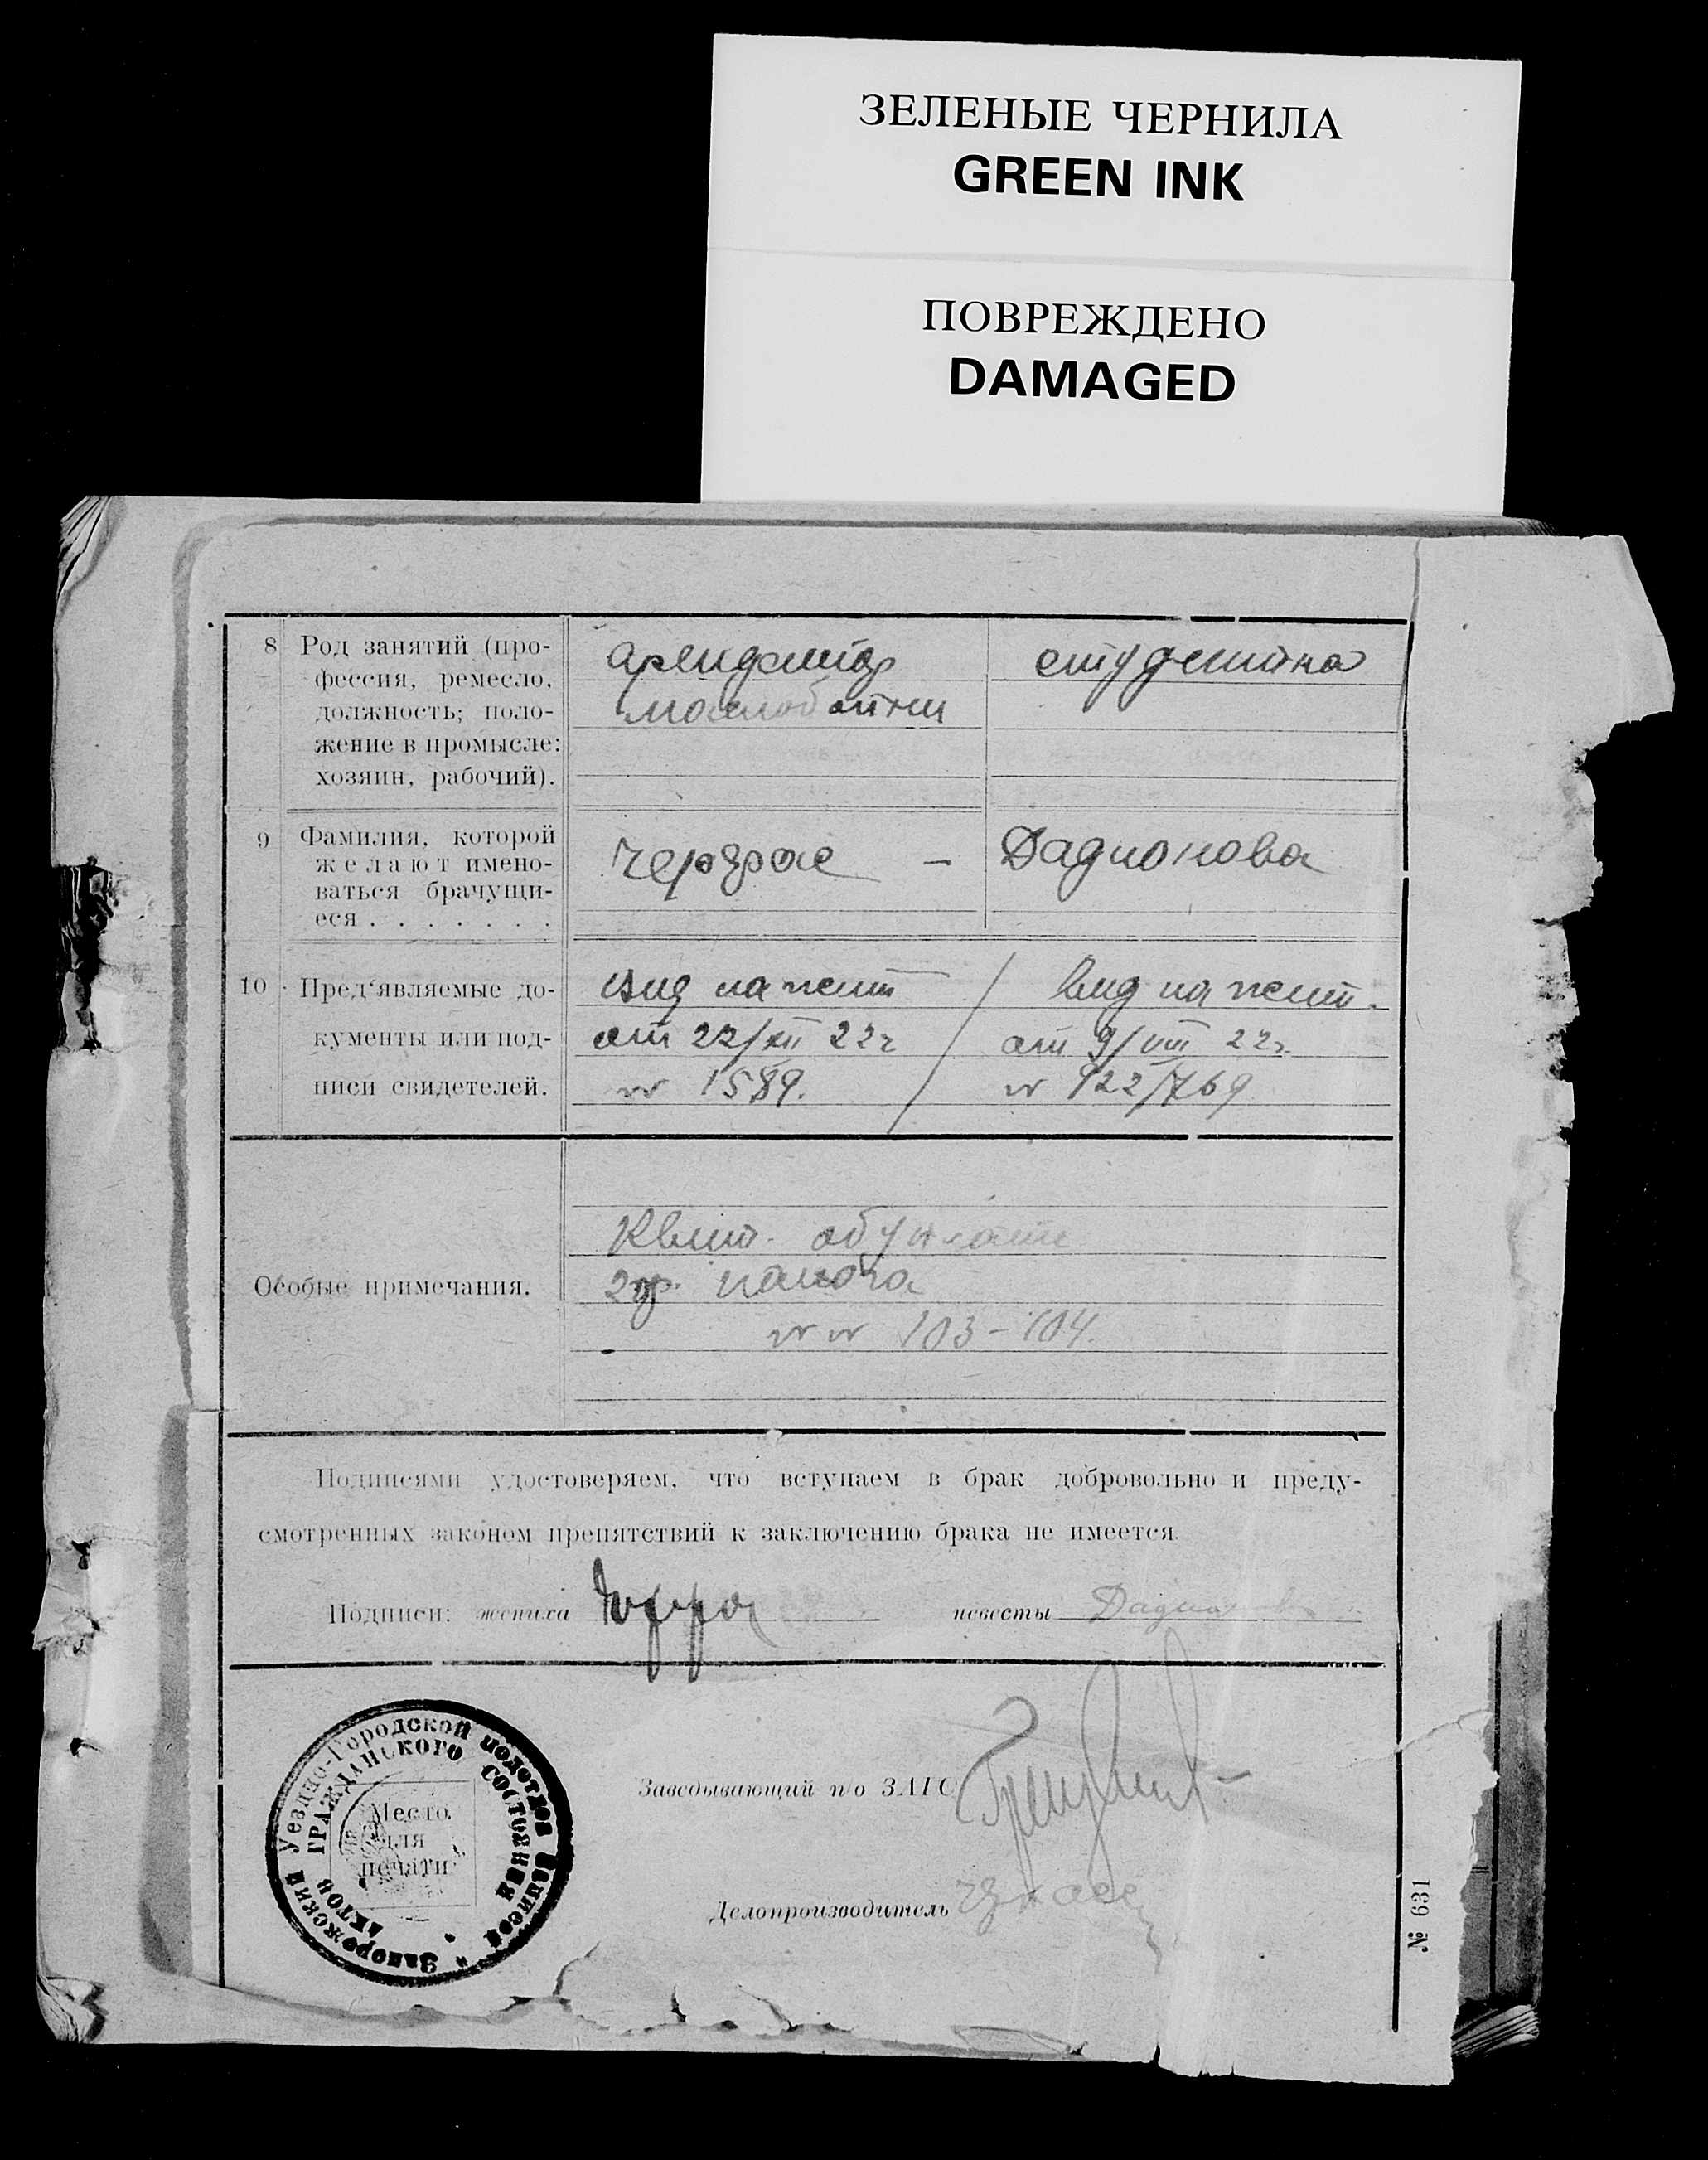 ЗЕЛЕНЫЕ ЧЕРНИЛА
GREEN INK
ПОВРЕЖДЕНО
DAMAGED
8 Род занятий (про-
фессия, ремесло,
должность; поло-
жение в промысле:
хозяин, рабочий).
арендатор
маслобойни
студентка
9 Фамилия, которой
желают имено-
ваться брачущи-
еся . . . . . . .
— Дадионова
10 Пред'являемые до-
кументы или под-
писи свидетелей.
Вид на жит
от 22/XII 22 г
№ 1589.
Вид на жит.
от 9/VIII 22 г.
№ 922/769
Особые примечания.
Квит. об уплате
гр. налога
№№ 103-104.
Подписями удостоверяем, что вступаем в брак добровольно и преду-
смотренных законом препятствий к заключению брака не имеется.
Подписи: жениха невесты
Запорожский Уездно-Городской подотдел Записей
АКТОВ ГРАЖДАНСКОГО СОСТОЯНИЯ
Место
для
печати
Заведывающий п/о ЗАГС
Делопроизводитель
№ 631